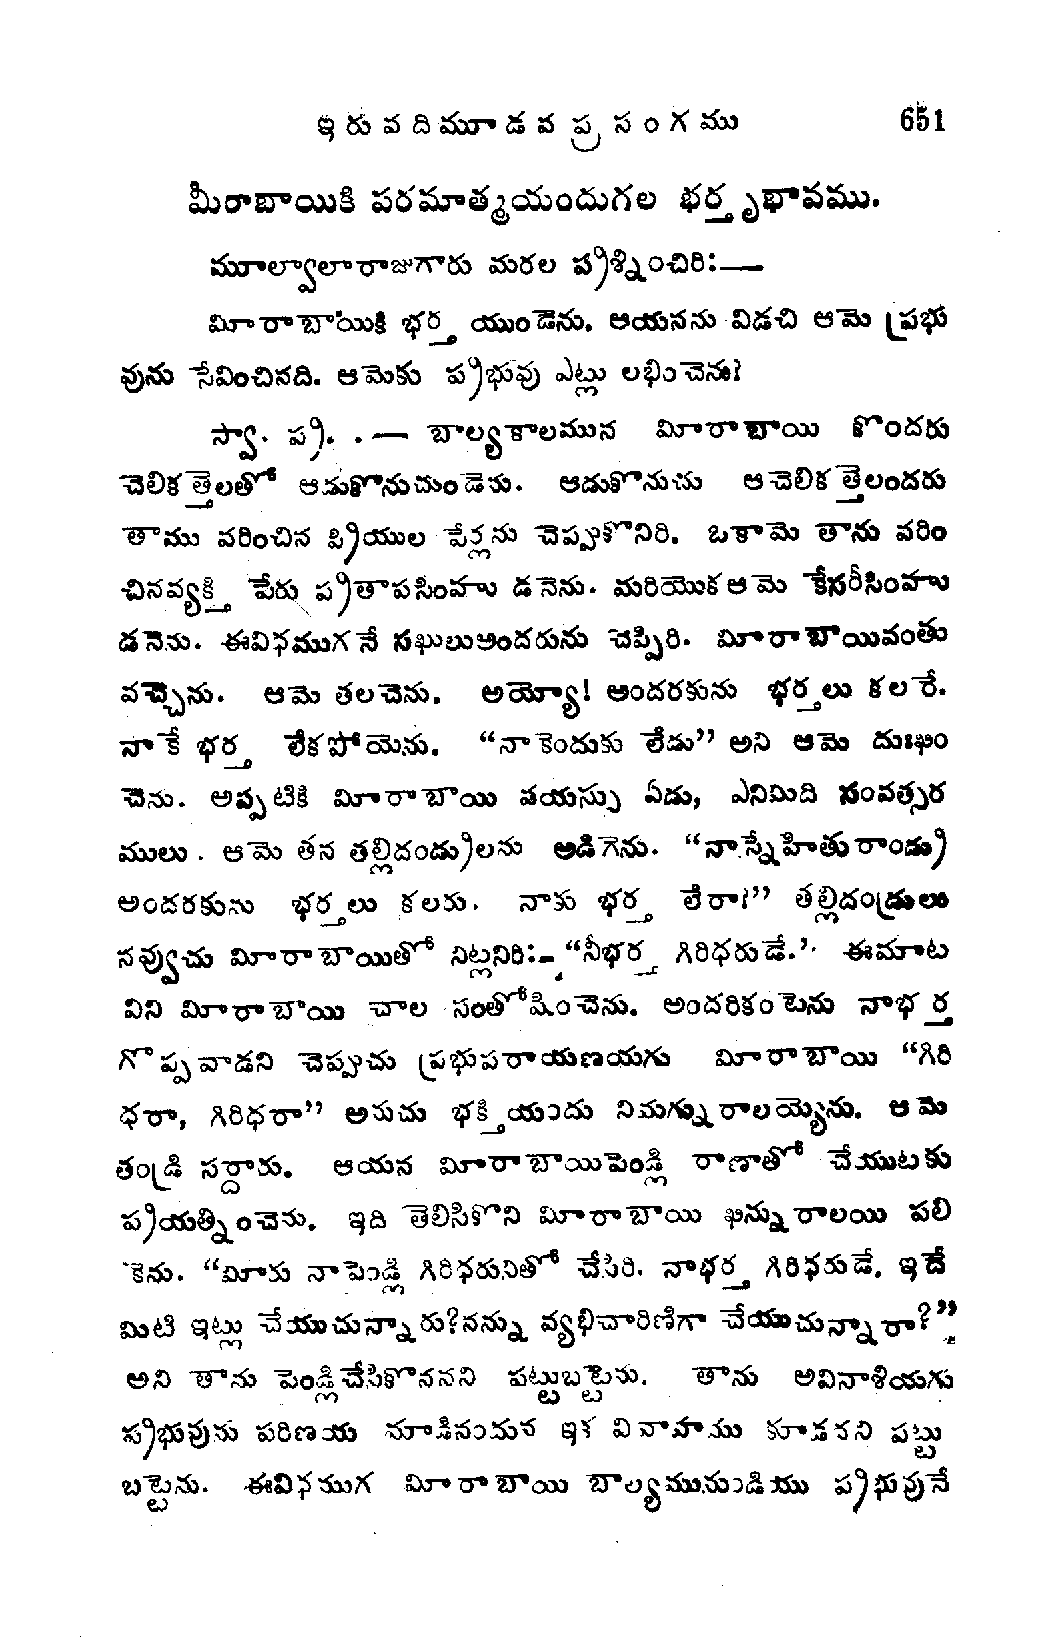 ఇరువదిమూడవ ప్రసంగము 651
మీరాబాయికి పరమాత్మయందుగల భర్తృభావము.
మూల్వాలారాజుగారు మరల ప్రశ్నించిరి:—
మీరాబాయికి భర్త యుండెను. ఆయనను విడచి ఆమె ప్రభు
వును సేవించినది. ఆమెకు ప్రభువు ఎట్లు లభించెను?
స్వా. ప్ర. .— బాల్యకాలమున మీరాబాయి కొందరు
చెలికత్తెలతో ఆడుకొనుచుండెను. ఆడుకొనుచు ఆచెలికత్తెలందరు
తాము వరించిన ప్రియుల పేర్లను చెప్పుకొనిరి. ఒకామె తాను వరిం
చినవ్యక్తి పేరు ప్రతాపసింహు డనెను. మరియొకఆమె కేసరీసింహు
డనెను. ఈవిధముగనే సఖులుఅందరును చెప్పిరి. మీరాబాయివంతు
వచ్చెను. ఆమె తలచెను. అయ్యో! అందరకును భర్తలు కలరే.
నాకే భర్త లేకపోయెను. “నాకెందుకు లేడు” అని ఆమె దుఃఖిం
చెను. అప్పటికి మీరాబాయి వయస్సు ఏడు, ఎనిమిది సంవత్సర
ములు. ఆమె తన తల్లిదండ్రులను అడిగెను. “నాస్నేహితురాండ్ర
అందరకును భర్తలు కలరు. నాకు భర్త లేరా?” తల్లిదండ్రులు
నవ్వుచు మీరాబాయితో నిట్లనిరి:– “నీభర్త గిరిధరుడే.” ఈమాట
విని మీరాబాయి చాల సంతోషించెను. అందరికంటెను నాభర్త
గొప్పవాడని చెప్పుచు ప్రభుపరాయణయగు మీరాబాయి “గిరి
ధరా, గిరిధరా” అనుచు భక్తియందు నిమగ్నురాలయ్యెను. ఆమె
తండ్రి సర్దారు. ఆయన మీరాబాయిపెండ్లి రాణాతో చేయుటకు
ప్రయత్నించెను. ఇది తెలిసికొని మీరాబాయి ఖిన్నురాలయి పలి
కెను. “మీరు నాపెండ్లి గిరిధరునితో చేసిరి. నాభర్త గిరిధరుడే. ఇదే
మిటి ఇట్లు చేయుచున్నారు?నన్ను వ్యభిచారిణిగా చేయుచున్నారా?”
అని తాను పెండ్లిచేసికొననని పట్టుబట్టెను. తాను అవినాశియగు
ప్రభువును పరిణయ మాడినందున ఇక వివాహము కూడనని పట్టు
బట్టెను. ఈవిధముగ మీరాబాయి బాల్యమునుండియు ప్రభువునే